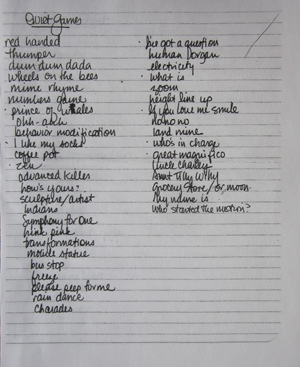 Quiet Games
red handed
thumper
dum dum dada
wheels on the bees
mime rhyme
numbers game
prince of whales
ooh-aach
behavior modification
I like my socks
coffee pot
zen
advanced killer
how's yours?
sculpture/artist
indians
Symphony for One
hink pink
transformations
mobile statue
bus stop
freeze
please peep for me
rain dance
charades
I've got a question
human
electricity
what is
zoom
height line up
If you love me smile
no no no
land mine
who's in charge
great magnifico
Uncle Charley
Aunt Tilly Willy
Grocery Store/or moon
My name is
Who started the motion?